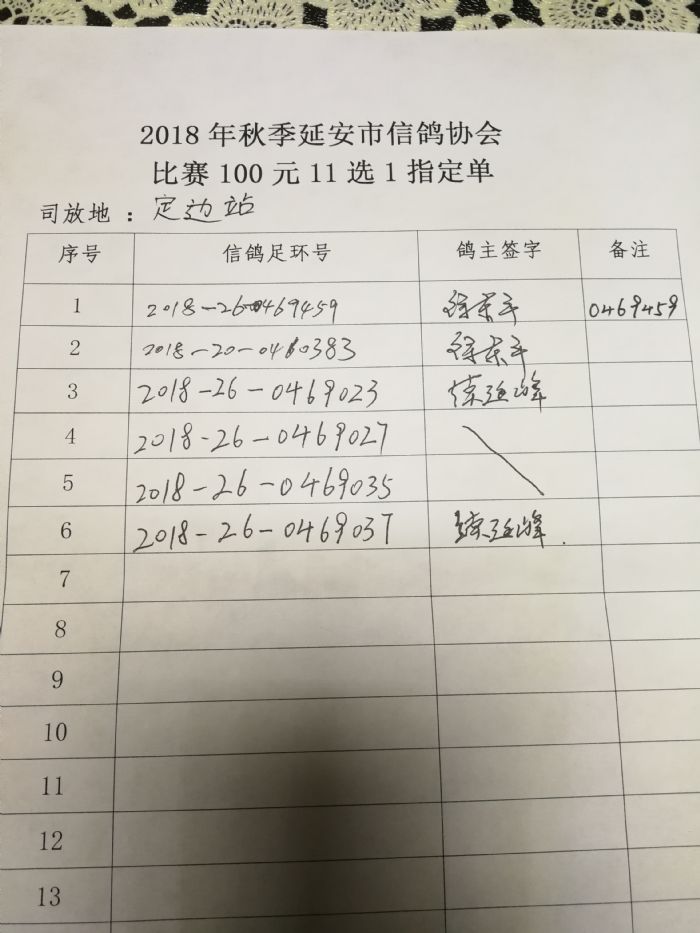 2018年秋季延安市信鸽协会
比赛100元11选1指定单
司放地：定边站
序号 信鸽足环号 鸽主签字 备注
1 2018-26-0469459 0469459
2
3 2018-26-0469023 练延峰
4 2018-26-0469027
5 2018-26-0469035
6 2018-26-0469037 练延峰
7
8
9
10
11
12
13